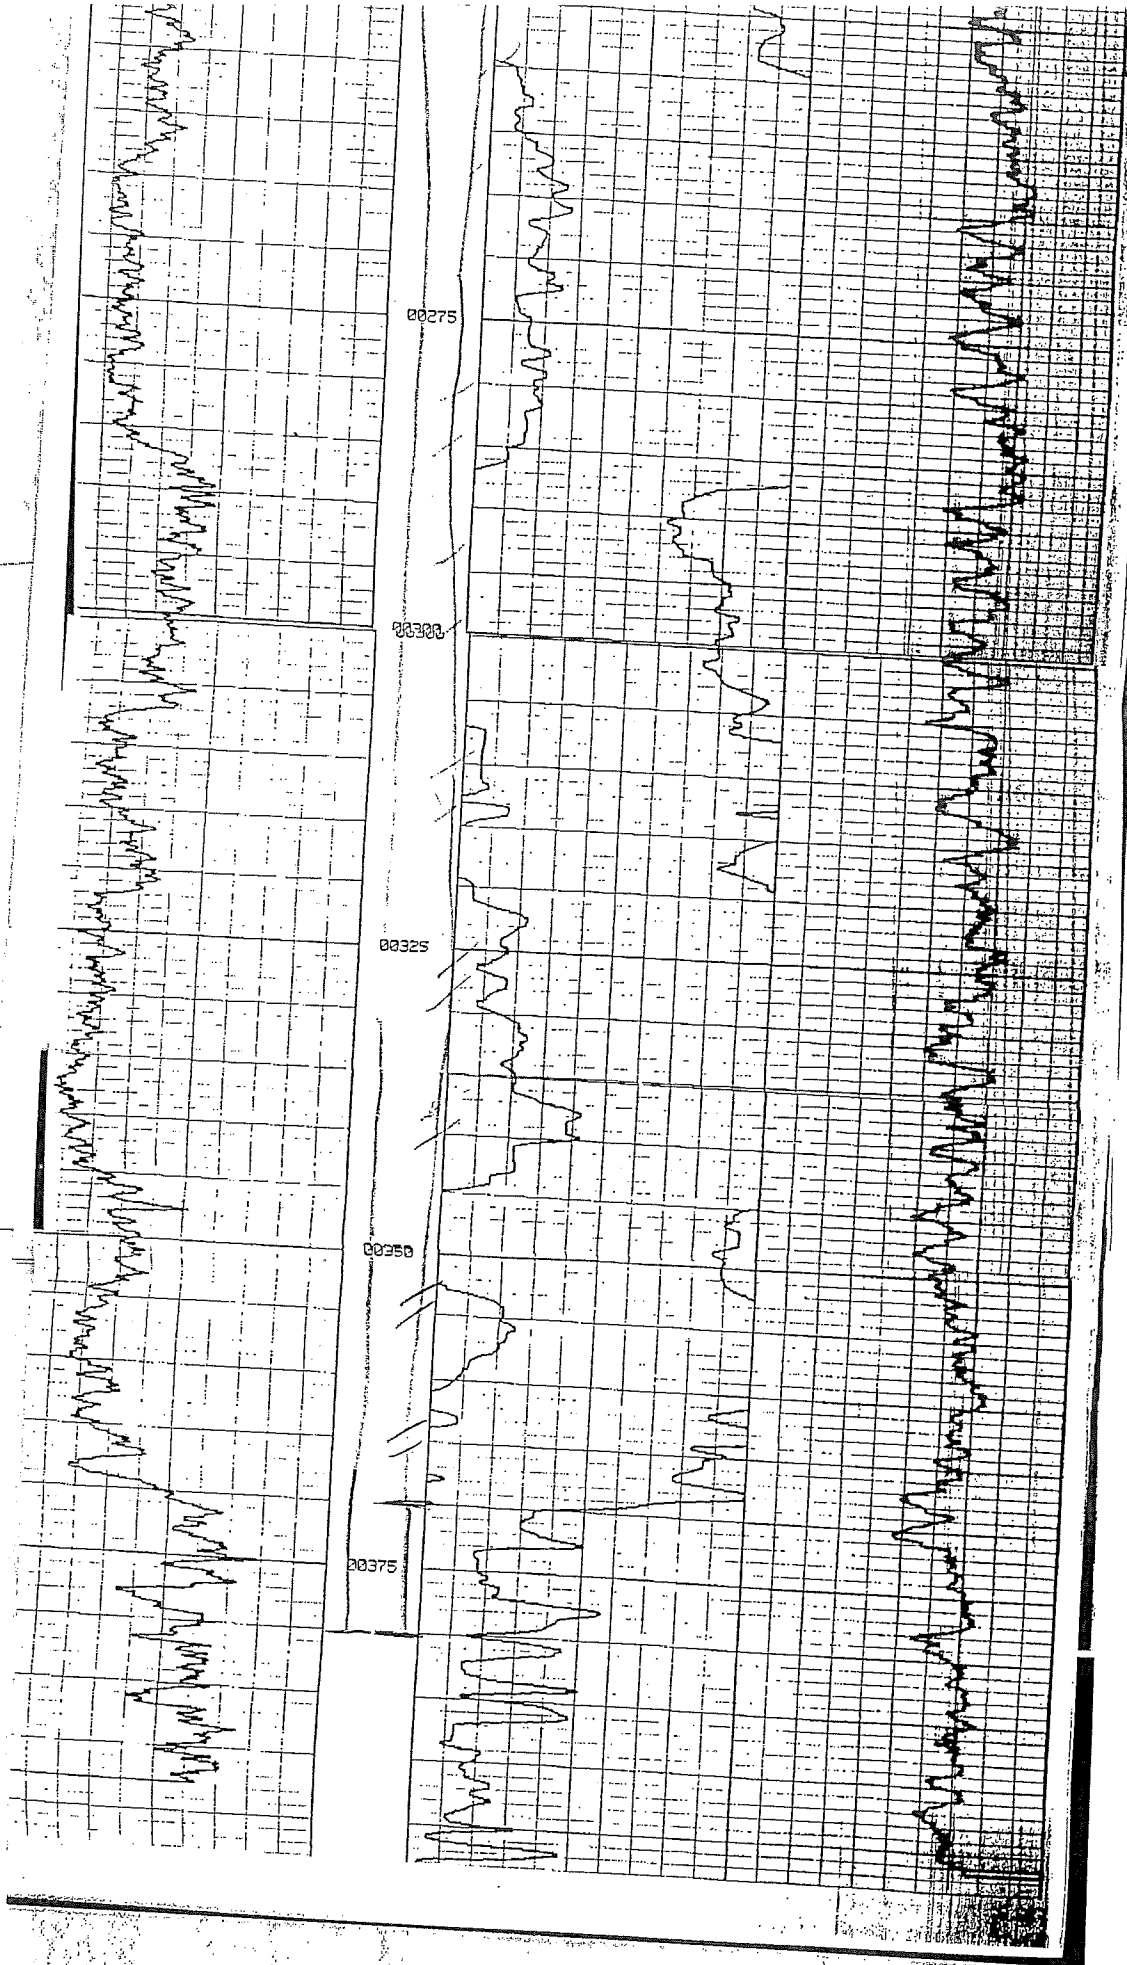 00275
00300
00325
00350
00375